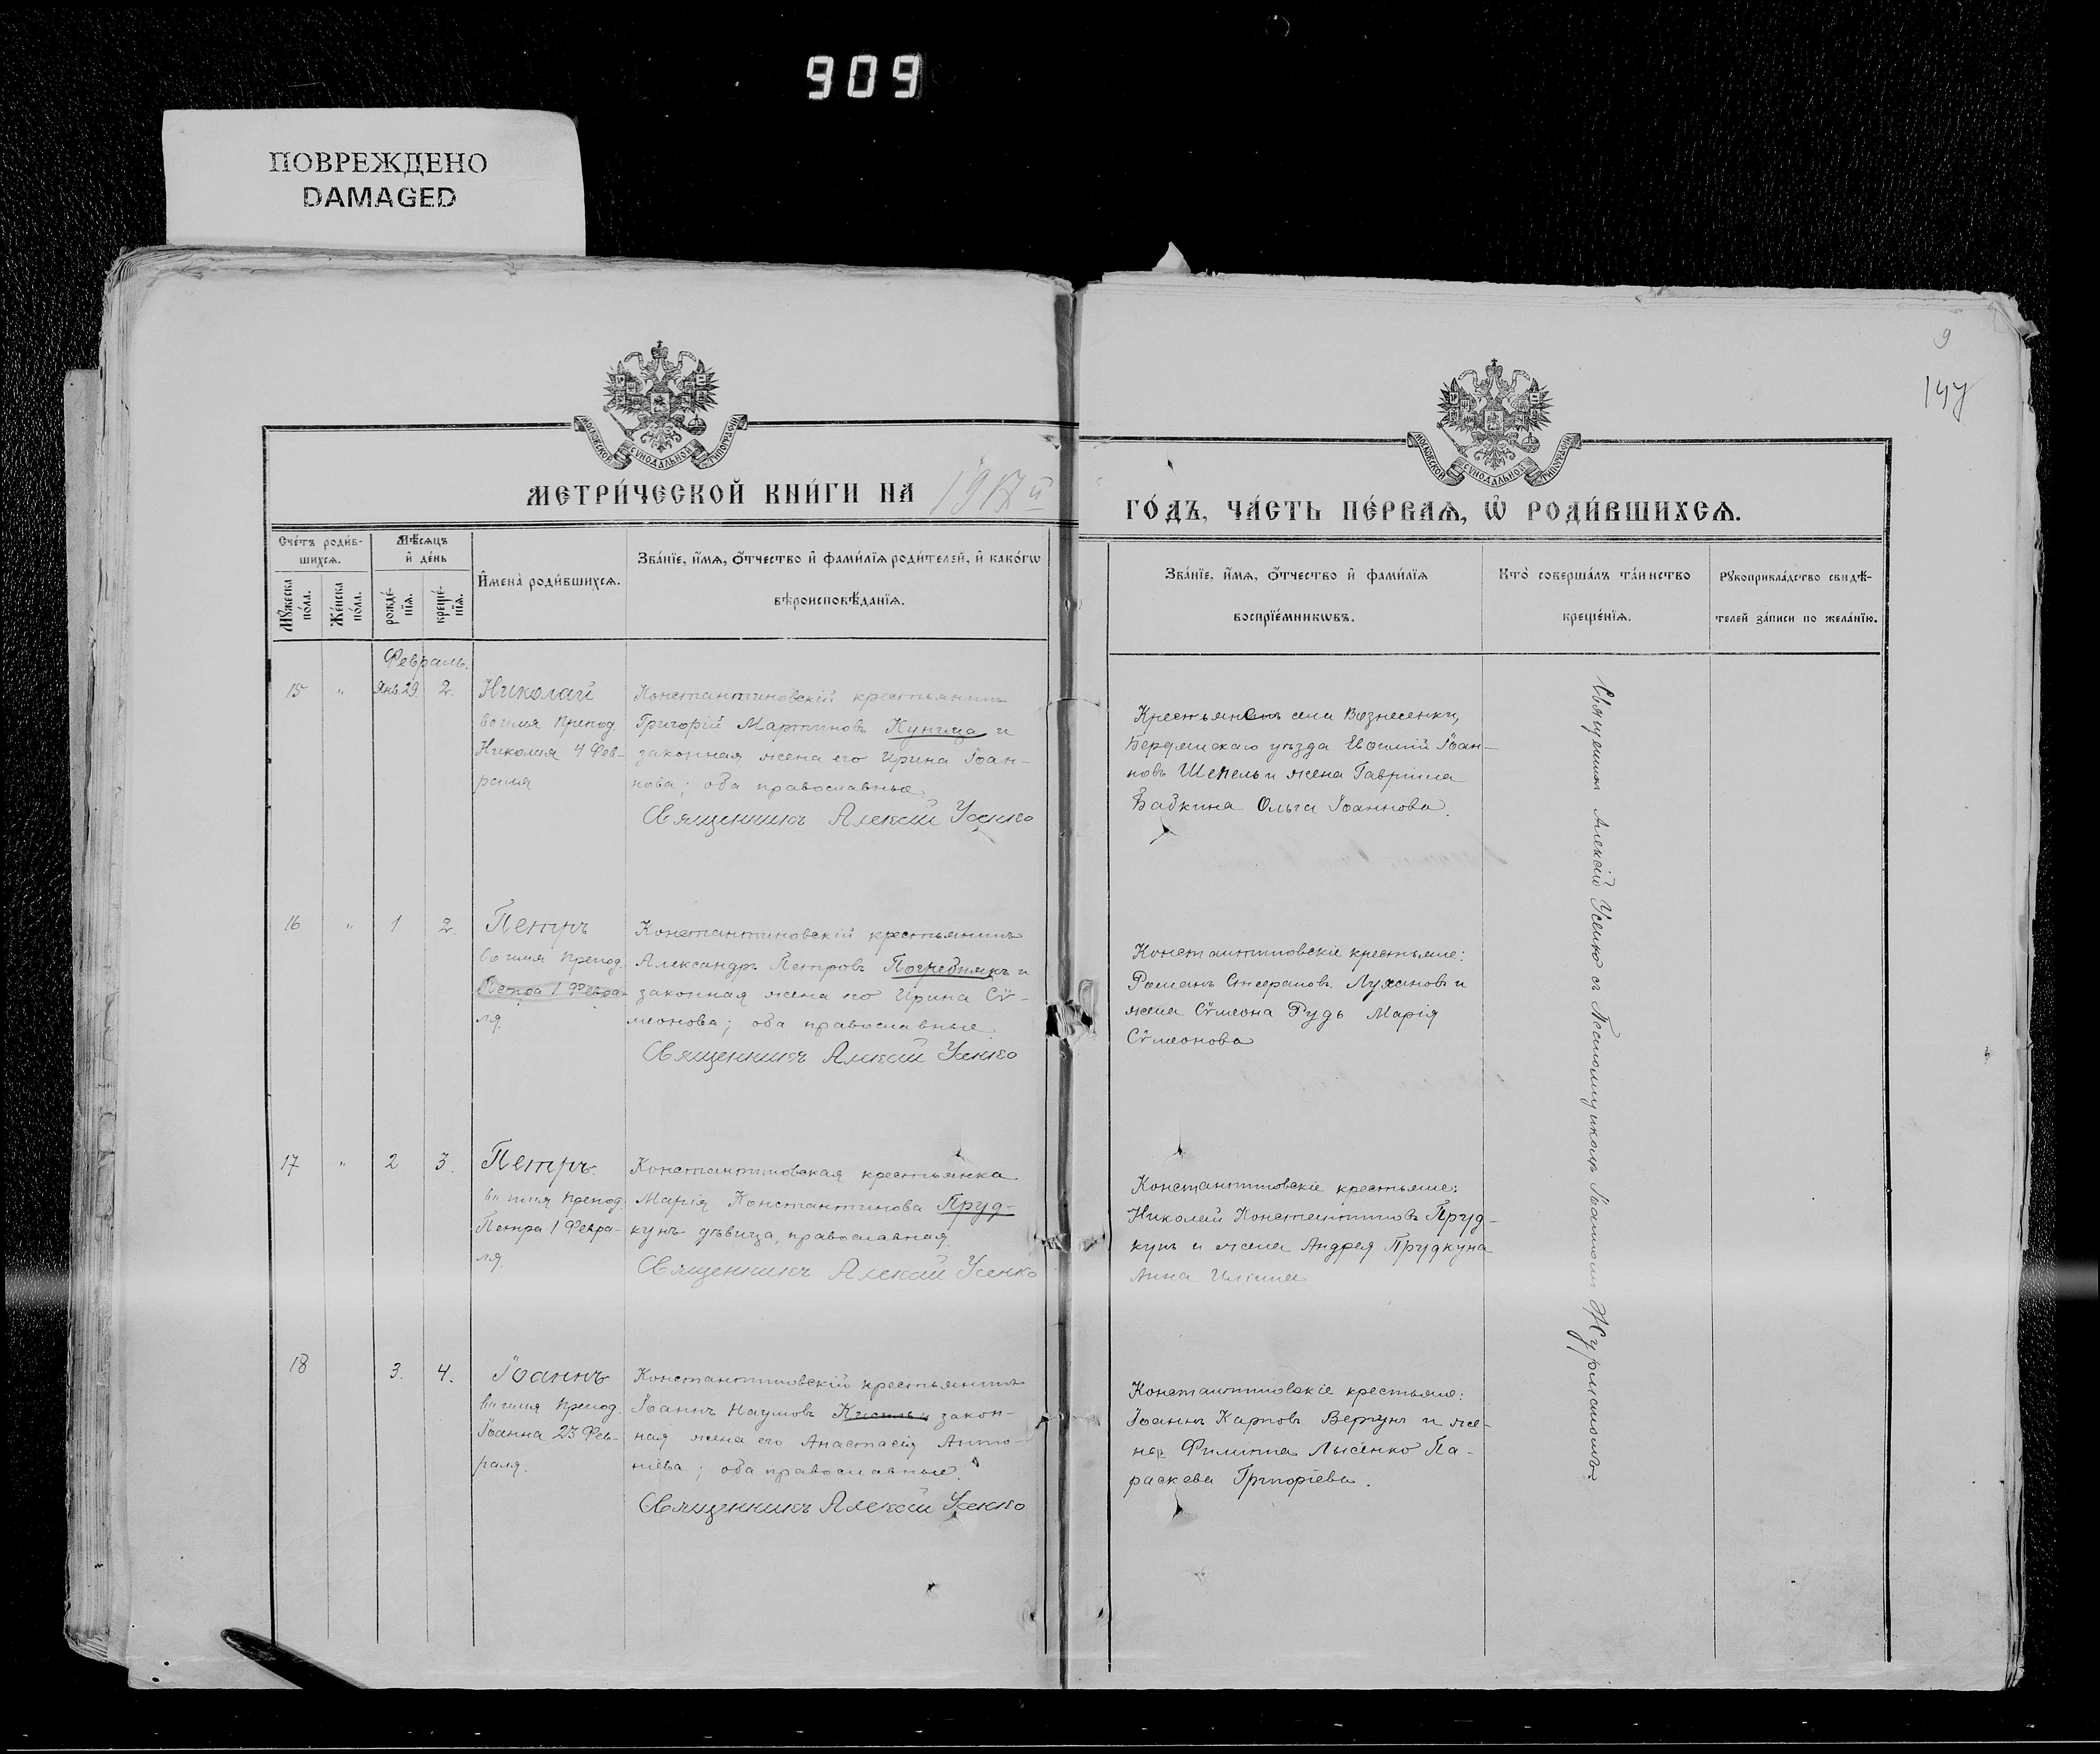 909
ПОВРЕЖДЕНО
DAMAGED
9
147
МОСКОВСКОЙ СѴНОДАЛЬНОЙ ТИПОГРАФІИ
МОСКОВСКОЙ СѴНОДАЛЬНОЙ ТИПОГРАФІИ
МЕТРИ́ЧЕСКОЙ КНИ́ГИ НА
ГО́ДЪ, ЧА́СТЬ ПЕ́РВАѦ, Ѡ҆ РОДИ́ВШИХСѦ.
Сче́тъ роди́в-
шихсѧ.
Мꙋ́жеска по́ла.
Же́нска по́ла.
Мѣ́сѧцъ
и҆ де́нь
рожде́-
нїѧ.
креще́-
нїѧ.
И҆мена̀ роди́вшихсѧ.
Зва́нїе, и҆́мѧ, о҆́тчество и҆ фами́лїѧ роди́телей, и҆ како́гѡ
вѣроисповѣ́данїѧ.
Зва́нїе, и҆́мѧ, о҆́тчество и҆ фами́лїѧ
воспрїе́мникѡвъ.
Кто̀ соверша́лъ та́инство
креще́нїѧ.
Рꙋкоприкла́дство свидѣ́-
телей за́писи по жела́нїю.
Февраль.
15 " Янв. 29. 2. Николай
во имя Препод.
Николая 4 Фев-
раля
Константиновскій крестьянинъ
Григорій Мартиновъ Куница и
законная жена его Ирина Іоан-
нова; оба православные.
Священникъ Алексій Усенко
Крестьянинъ села Вознесенки,
Бердянскаго уѣзда Евѳимій Іоан-
новъ Шепель и жена Гавріила
Бабкина Ольга Іоаннова.
16 " 1 2. Петръ
во имя Препод.
Петра 1 Февра-
ля.
Константиновскій крестьянинъ
Александръ Петровъ Погребнякъ и
законная жена его Ирина Сѵ-
меонова; оба православные
Священникъ Алексій Усенко
Константиновскіе крестьяне:
Романъ Лухановъ и
жена Сѵмеона Рудь Марія
Сѵмеонова
17 " 2 3. Петръ.
во имя Препод.
Петра 1 Февра-
ля.
Константиновская крестьянка
Марія Константинова Пруд-
кунъ дѣвица, православная.
Священникъ Алексій Усенко
Константиновскіе крестьяне:
Николай Константиновъ Пруд-
кунъ и жена Андрея Прудкуна
Анна Иліина
18 3. 4. Іоаннъ
во имя Препод.
Іоанна 23 Фев-
раля.
Константиновскій крестьянинъ
Іоаннъ Наумовъ Кисиль и закон-
ная жена его Анастасія Анто-
ніева; оба православные.
Священникъ Алексій Усенко
Константиновскіе крестьяне:
Іоаннъ Карповъ Вергунъ и же-
на Филиппа Лысенко Па-
раскева Григоріева.
Священникъ Алексій Усенко съ Псаломщикомъ Іоанномъ